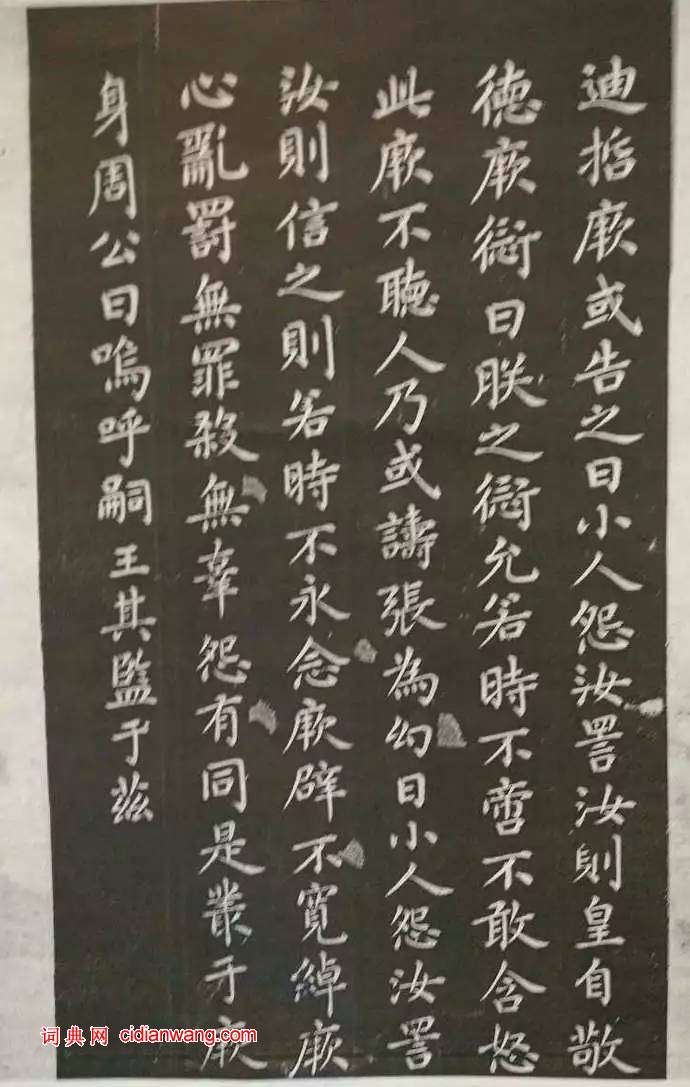 迪哲厥或告之曰小人怨汝詈汝則皇自敬
德厥愆曰朕之愆允若時不啻不敢含怒
此厥不聽人乃或譸張為幻曰小人怨汝詈
汝則信之則若時不永念厥辟不寬綽厥
心亂罰無罪殺無辜怨有同是叢于厥
身周公曰嗚呼嗣王其監于茲
词典网 cidianwang.com